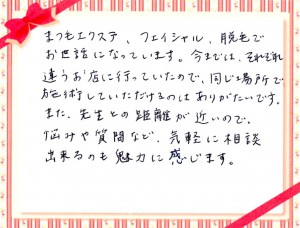 まつ毛エクステ、フェイシャル、脱毛で
お世話になっています。今までは、それぞれ
違うお店に行っていたので、同じ場所で
施術していただけるのはありがたいです。
また、先生との距離が近いので、
悩みや質問など、気軽に相談
出来るのも魅力に感じます。